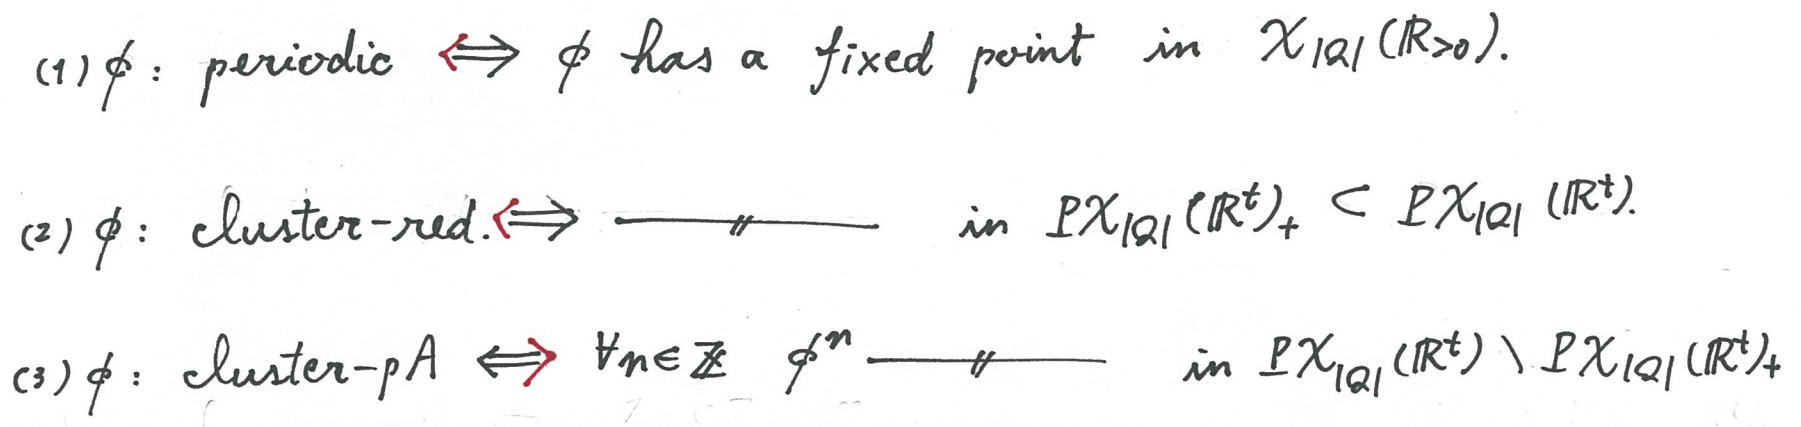 (1) ϕ : periodic ⟺ ϕ has a fixed point in 𝒳|Q|(ℝ>0).
(2) ϕ : cluster-red. ⟺ ——〃—— in P𝒳|Q|(ℝᵗ)₊ ⊂ P𝒳|Q|(ℝᵗ).
(3) ϕ : cluster-pA ⟺ ∀n∈ℤ ϕⁿ ——〃—— in P𝒳|Q|(ℝᵗ) \ P𝒳|Q|(ℝᵗ)₊